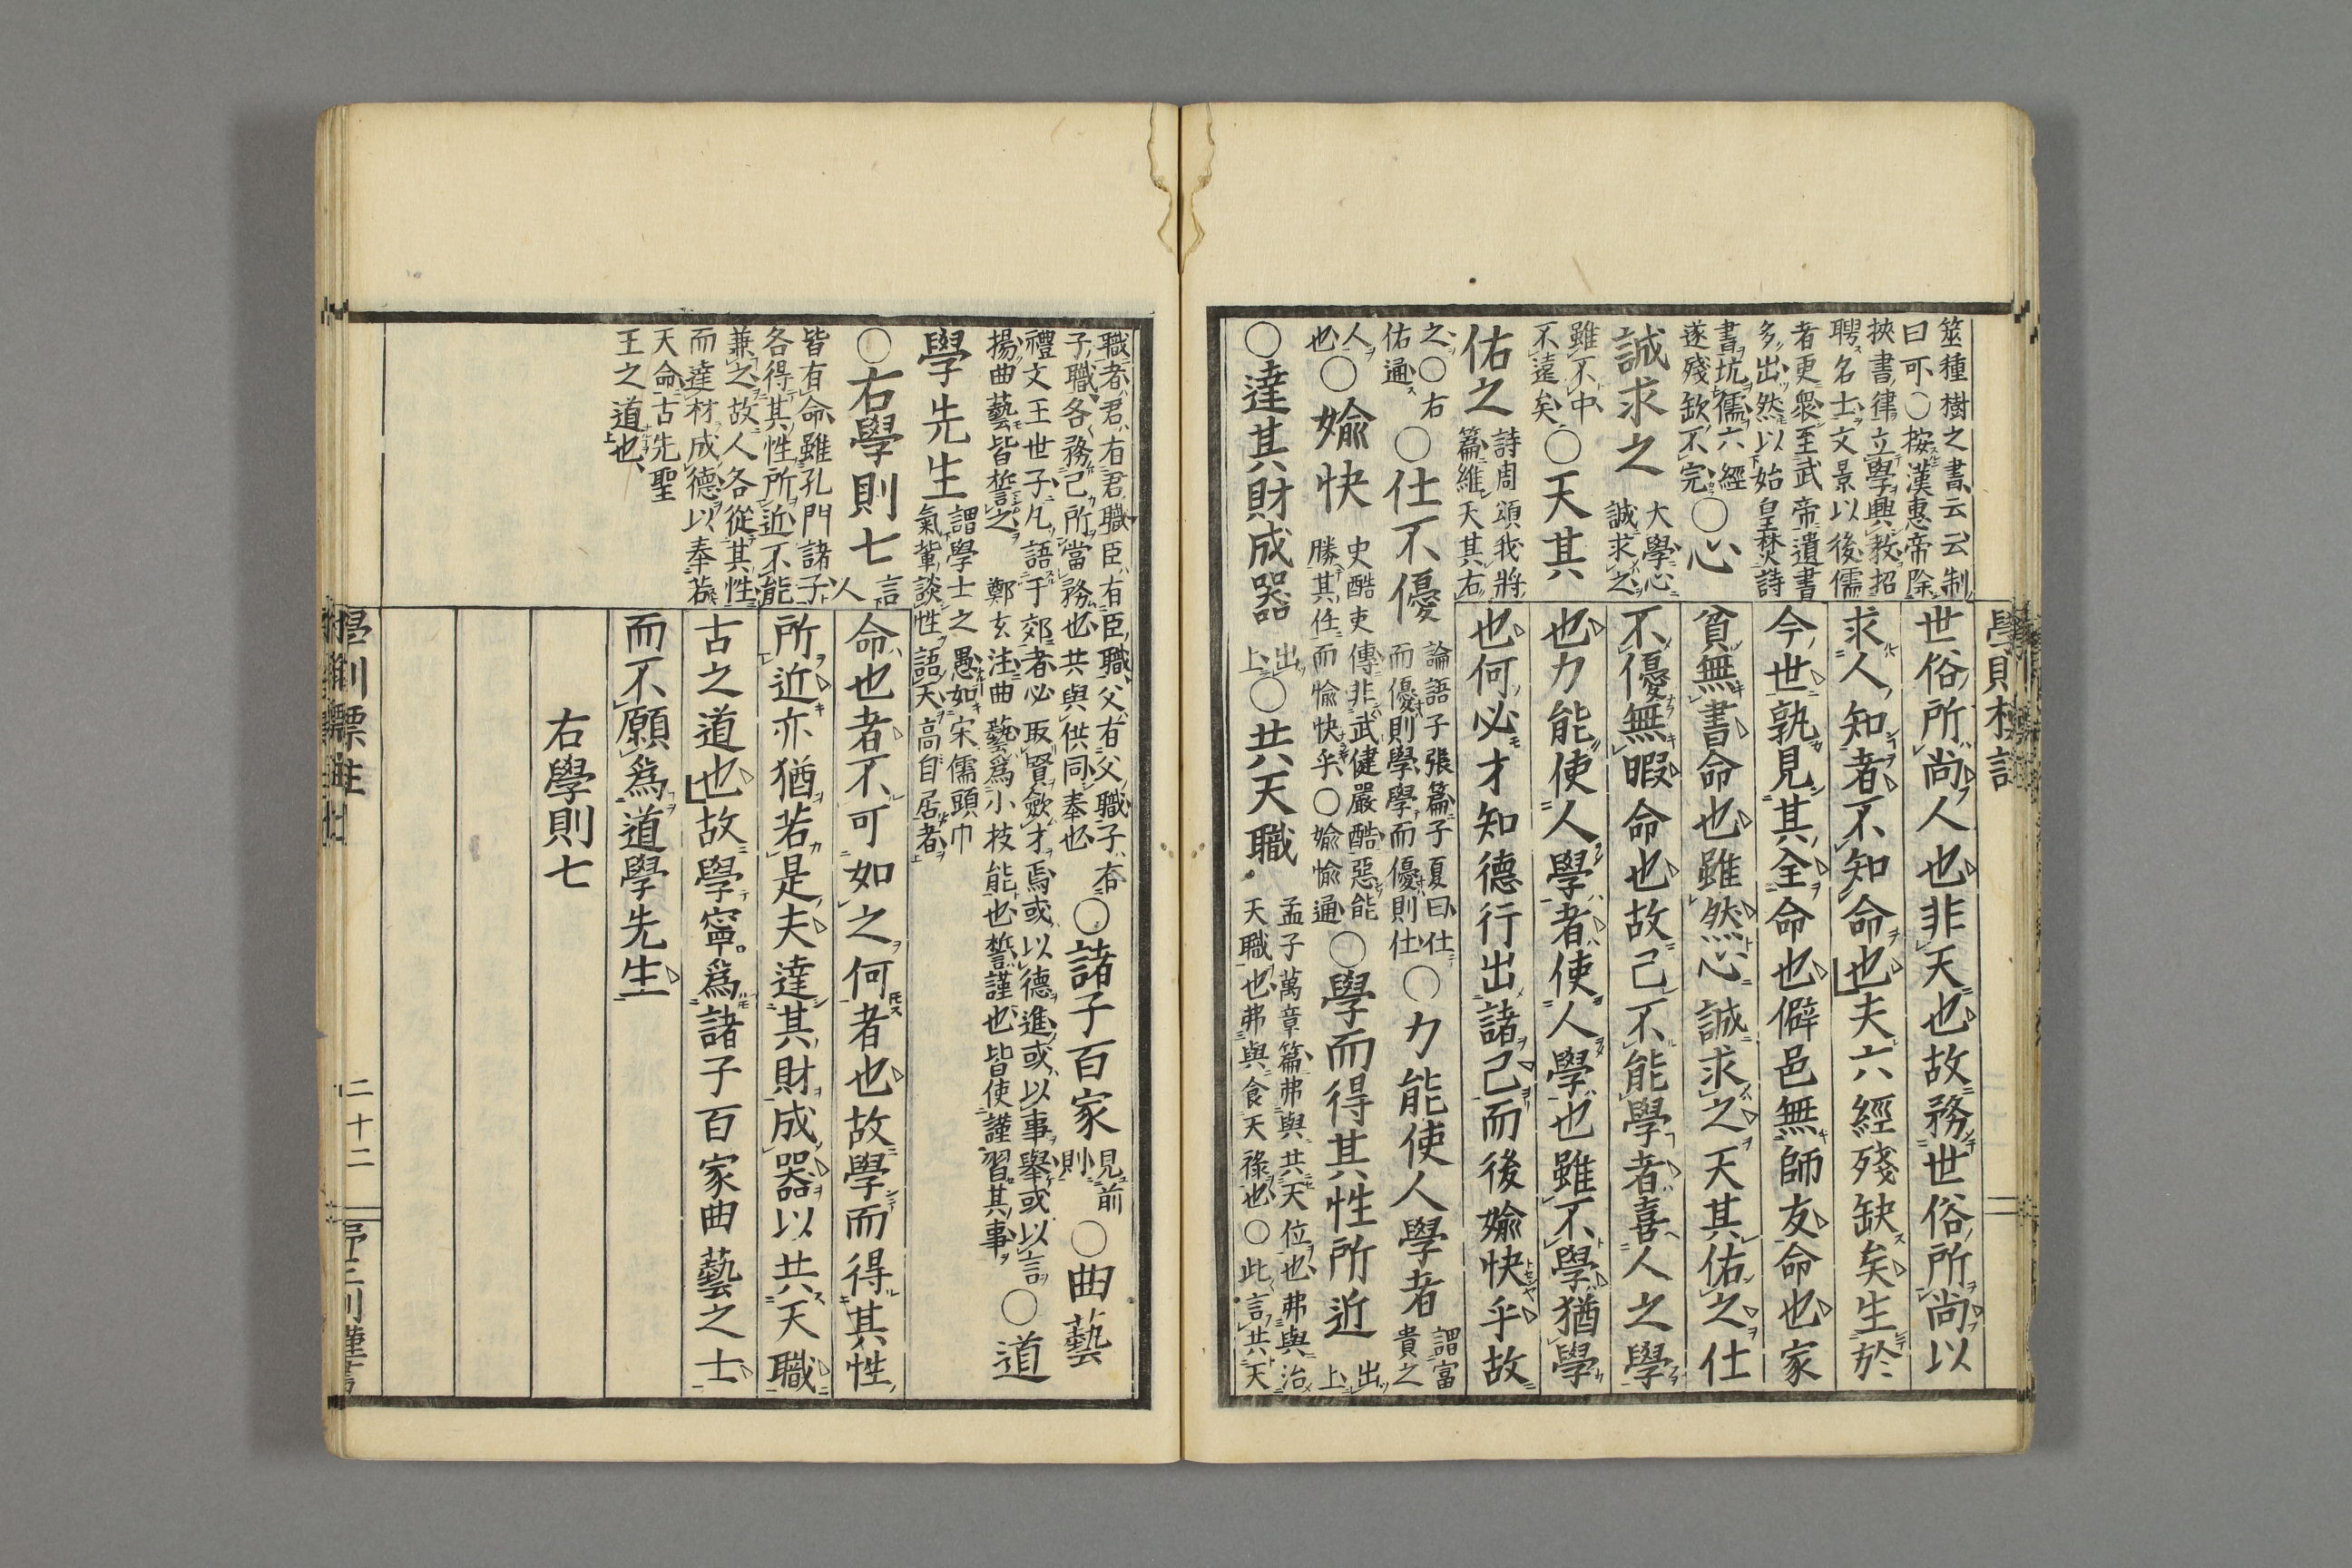 筮種樹之書云云制
曰可○按漢惠帝除
挾書律立學興教招
聘名士文景以後儒
者更衆至武帝遺書
多出然以始皇焚詩
書坑儒六經
遂殘欽不完
○心
誠求之
大學心
誠求之
雖不中
不遠矣
○天其
佑之
詩周頌我將
篇維天其右
之○右
佑通
○仕不優
論語子張篇子夏曰仕
而優則學學而優則仕
○力能使人學者
謂富
貴之
人
也
○婾快
史酷吏傳非武健嚴酷惡能
勝其任而愉快乎○婾愉通
○學而得其性所近
出
上
○達其財成器
出
上
○共天職
孟子萬章篇弗與共天位也弗與治
天職也弗與食天祿也○此言共天
世俗所尚人也非天也故務世俗所尚以
求人知者不知命也夫六經殘缺矣生於
今世孰見其全命也僻邑無師友命也家
貧無書命也雖然心誠求之天其佑之仕
不優無暇命也故己不能學者喜人之學
也力能使人學者使人學也雖不學猶學
也何必才知德行出諸己而後婾快乎故
職者君有君職臣有臣職父有父職子有
子職各務己所當務也共與供同奉也
○諸子百家
見前
則
○曲藝
禮文王世子凡語于郊者必取賢斂才焉或以德進或以事舉或以言
揚曲藝皆誓之 鄭玄注曲藝爲小技能也誓謹也皆使謹習其事
○道
學先生
謂學士之愚如宋儒頭巾
氣輩談性語天高自居者
○右學則七
言
人
皆有命雖孔門諸子
各得其性所近不能
兼之故人各從其性
而達材成德以奉若
天命古先聖
王之道也
命也者不可如之何者也故學而得其性
所近亦猶若是夫達其財成器以共天職
古之道也故學寧爲諸子百家曲藝之士
而不願爲道學先生
右學則七
二十二